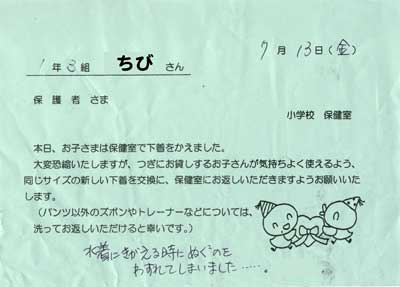 7月13日(金)
1年3組 ちび さん
保護者さま
小学校 保健室
本日、お子さまは保健室で下着をかえました。
大変恐縮いたしますが、つぎにお貸しするお子さんが気持ちよく使えるよう、
同じサイズの新しい下着を交換に、保健室にお返しいただきますようお願いいた
します。
(パンツ以外のズボンやトレーナーなどについては、
洗ってお返しいただけると幸いです。)
水着にきがえる時にぬぐのを
わすれてしまいました……。